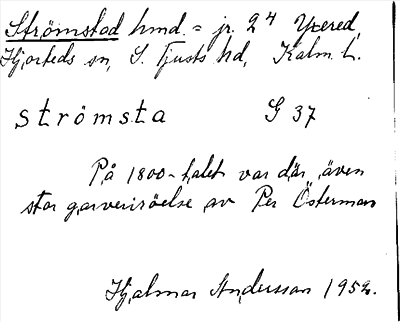 Strömstad hmd. = jr. 2⁴ Yxered,
Hjorteds sn, S. Tjusts hd, Kalm. l.
strömsta G 37
På 1800-talet var där även
stor garverirörelse av Per Österman
Hjalmar Andersson 1952.